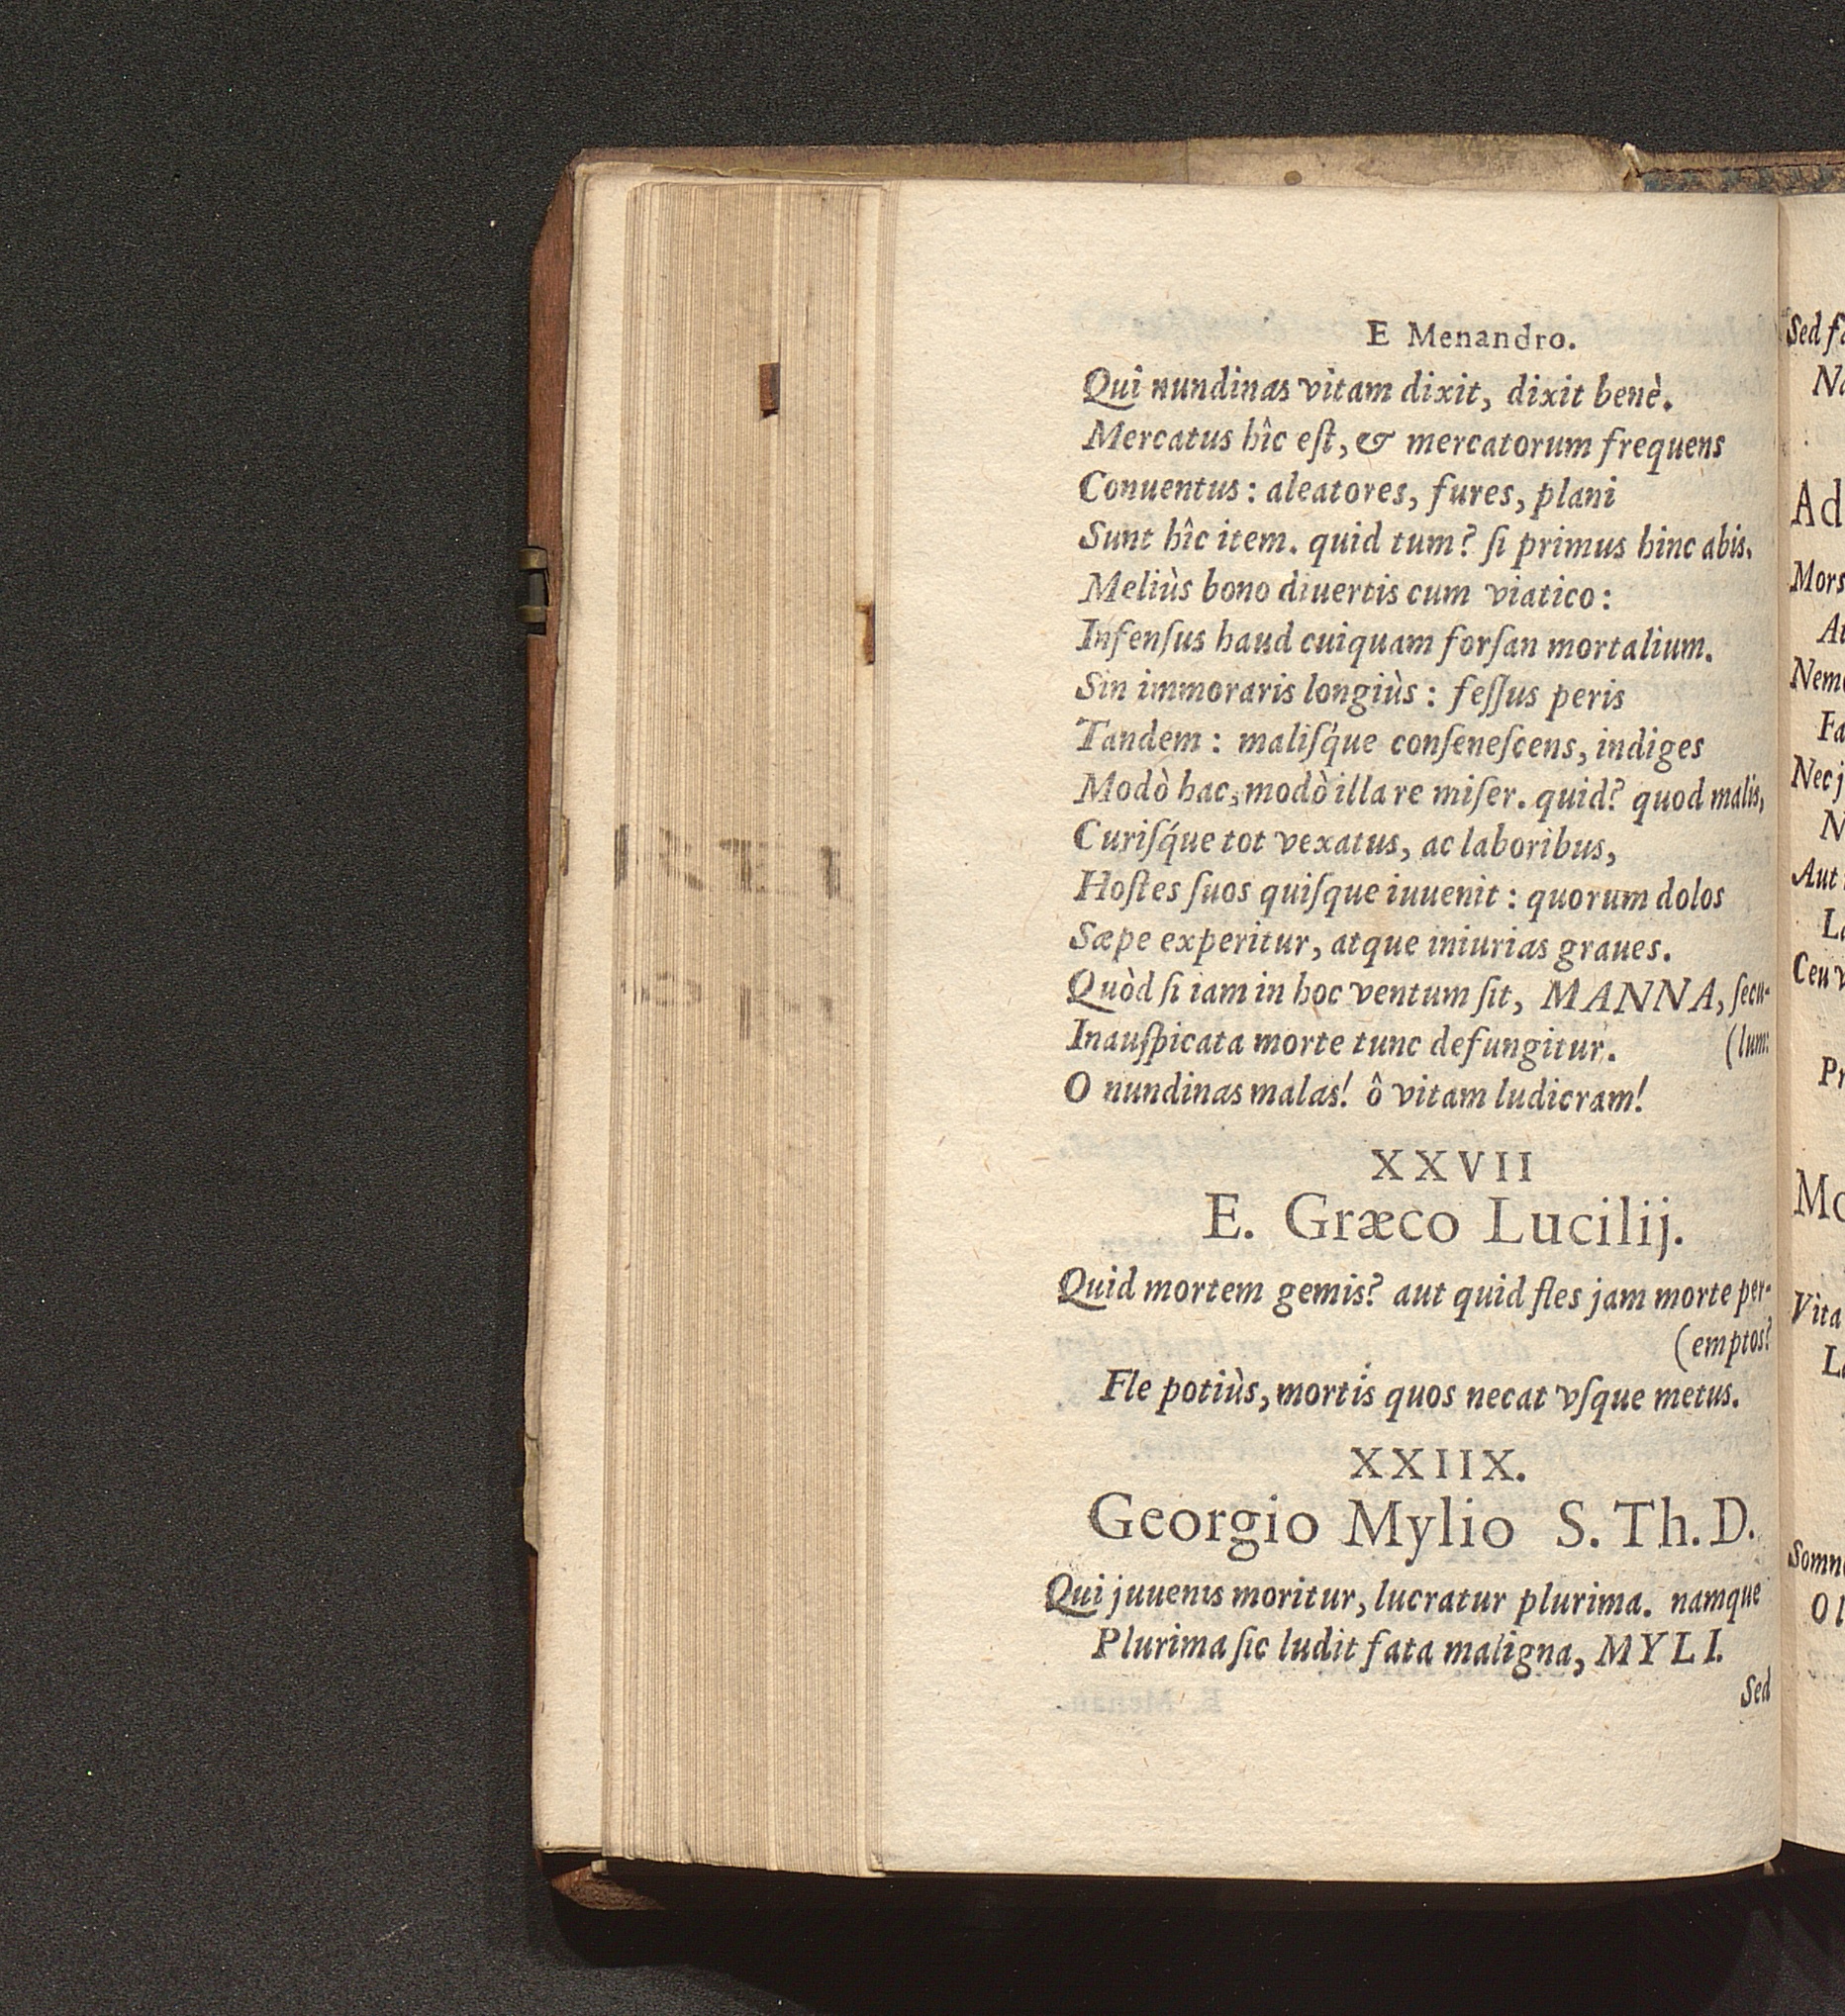 E Menandro.
Qui nundinas vitam dixit, dixit benè.
Mercatus hîc eſt, & mercatorum frequens
Conuentus: aleatores, fures, plani
Sunt hîc item. quid tum? ſi primus hinc abis.
Meliùs bono diuertis cum viatico:
Infenſus haud cuiquam forſan mortalium.
Sin immoraris longiùs: feſſus peris
Tandem: malisq́ue conſeneſcens, indiges
Modò hac, modò illa re miſer. quid? quod malis,
Curiſq́ue tot vexatus, ac laboribus,
Hoſtes ſuos quiſque iuuenit: quorum dolos
Sæpe experitur, atque iniurias graues.
Quòd ſi iam in hoc ventum ſit, MANNA, ſecu-
Inauſpicata morte tunc defungitur. (lum:
O nundinas malas! ô vitam ludicram!
XXVII
E. Græco Lucilij.
Quid mortem gemis? aut quid fles jam morte per-
(emptos?
Fle potiùs, mortis quos necat vſque metus.
XXIIX.
Georgio Mylio S. Th. D.
Qui juuenis moritur, lucratur plurima. namque
Plurima ſic ludit fata maligna, MYLI.
Sed
Sed
Ad
Mors
Nec
Aut
Ceu
Vita